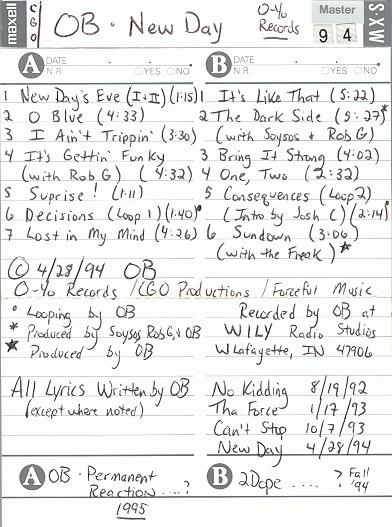 maxell
CGO
OB · New Day
O-Yo Records
Master
94
S-XW
A DATE
N.R. YES NO
B DATE
N.R. YES NO
1 New Day's Eve (I+II) (1:15)
2 O Blve (4:33)
3 I Ain't Trippin' (3:30)
4 It's Gettin' Funky
(with Rob G) (4:32)
5 Suprise! (1:11)
6 Decisions (Loop 1) (1:40)°
7 Lost in My Mind (4:26)
1 It's Like That (5:22)
2 The Dark Side (5:27)*
(with Soysos & Rob G)
3 Bring It Strong (4:02)
4 One, Two (2:32)
5 Consequences (Loop 2)
(Intro by Josh C) (2:14)°
6 Sundown (3:06)
(with the Freak) ★
© 4/28/94 OB
O-Yo Records / CGO Productions / Forceful Music
° Looping by OB
* Produced by Soysos, Rob G, & OB
★ Produced by OB
Recorded by OB at
WILY Radio Studios
W Lafayette, IN 47906
All Lyrics Written by OB
(except where noted)
No Kidding 8/19/92
Tha Force 1/17/93
Can't Stop 10/7/93
New Day 4/28/94
A OB · Permanent
Reaction ....?
1995
B 2Dope .... ? Fall '94